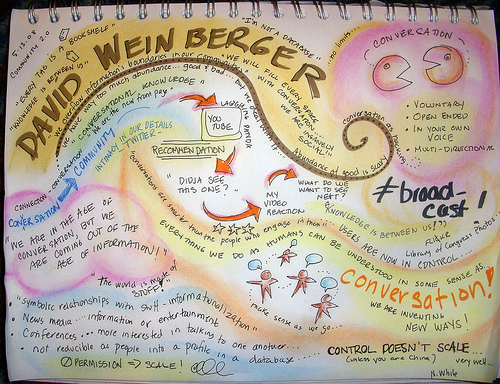 5.12.08
COMMUNITY 2.0
"EVERY TAG IS A BOOKSHELF"
"KNOWLEDGE IS BETWEEN US"
DAVID WEINBERGER
"I'M NOT A DATABASE"
no limits...
WE WILL FILL EVERY SPACE
WITH CONVERSATION
"MAN IS NAIVELY SOCIAL"
CONVERSATION
CONVERSATIONAL KNOWLEDGE
Abundance of good is scary
• VOLUNTARY
• OPEN ENDED
• IN YOUR OWN
VOICE
• MULTI-DIRECTIONAL
CONVERSATION
COMMUNITY
INTIMACY IN OUR DETAILS
TWITTER
YOU
TUBE
RECOMMENDATION
"DIDJA SEE
THIS ONE?"
MY
VIDEO
REACTION
WHAT DO WE
WANT TO SEE
NEXT?
#broad-
cast!
KNOWLEDGE IS BETWEEN US
USERS ARE NOW IN CONTROL
FLICKR
Library of Congress Photos
CONNECTION
CONVERSATION
"WE ARE IN THE AGE OF
CONVERSATION, BUT WE
ARE COMING OUT OF THE
AGE OF INFORMATION!"
Conversations are smarter than the people who engage in them
EVERYTHING WE DO AS HUMANS CAN BE UNDERSTOOD IN SOME SENSE AS
conversation!
"The world is made of
STUFF"
make sense as we go...
WE ARE INVENTING
NEW WAYS!
• "Symbolic relationships with stuff - informationalization"
• News media - information or entertainment
• Conferences... more interested in talking to one another...
• not reducible as people into a profile in a database
PERMISSION ⇒ SCALE!
CONTROL DOESN'T SCALE...
(unless you are China) very well...
N. White